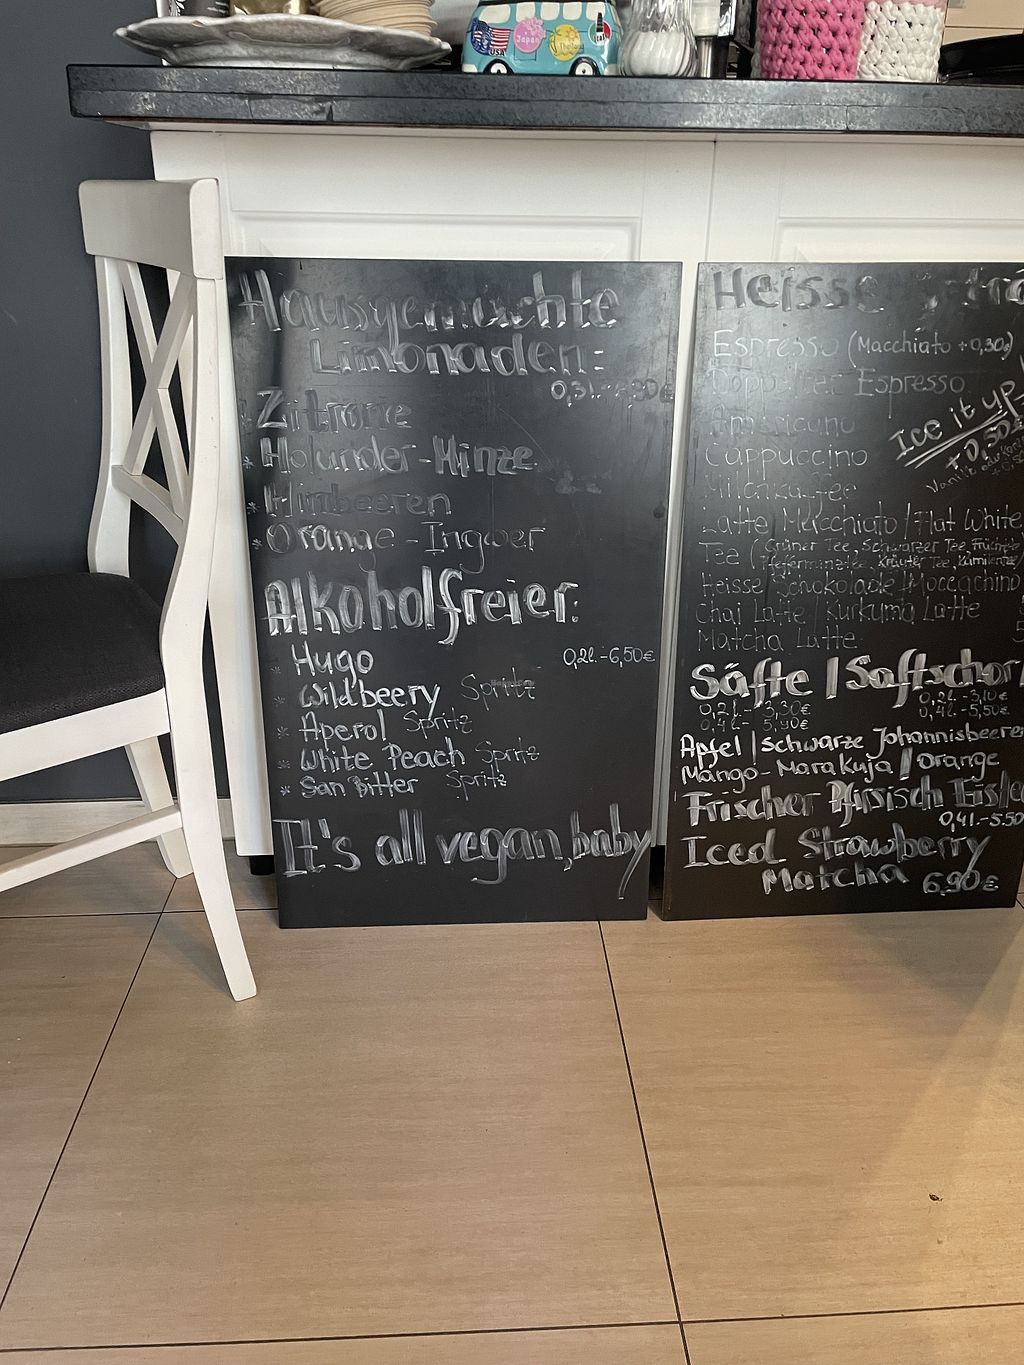 USA
Japan
Thailand
Hausgemachte
Limonaden:
0,3l.-
Zitrone
* Holunder-Minze
* Himbeeren
* Orange-Ingwer
Alkoholfreier:
* Hugo 0,2l.-6,50€
* Wildbeery Spritz
* Aperol Spritz
* White Peach Spritz
* San Bitter Spritz
It's all vegan, baby
Heisse
Espresso (Macchiato +0,30€)
Doppelter Espresso
Americano
Cappuccino
Milchkaffee
Latte Macchiato / Flat White
Tee (Grüner Tee, Schwarzer Tee, Früchte
Pfefferminztee, Kräuter Tee, Kamillente)
Heisse Schokolade / Moccachino
Chai Latte / Kurkuma Latte
Matcha Latte
Ice it up
+0,50€
Säfte | Saftschor
0,2l.- 3,30€ 0,2l.-3,10€
0,4l.- 5,90€ 0,4l.-5,50€
Apfel | schwarze Johannisbeeren
Mango-Marakuja | Orange
Frischer Pfirsich Eistee
0,4l.-5.50
Iced Strawberry
Matcha 6,90€